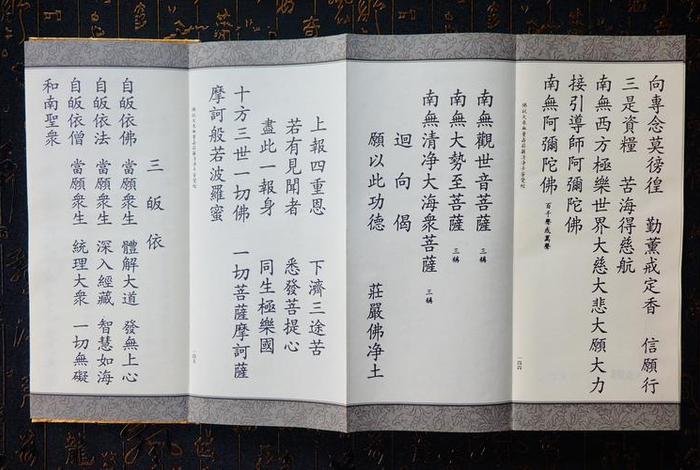 向專念莫徬徨　勤薰戒定香　信願行
三是資糧　苦海得慈航
南無西方極樂世界大慈大悲大願大力
接引導師阿彌陀佛
南無阿彌陀佛　百千聲或萬聲
一四六
南無觀世音菩薩　三稱
南無大勢至菩薩　三稱
南無清淨大海衆菩薩　三稱
迴向偈
願以此功德　莊嚴佛淨土
上報四重恩　下濟三途苦
若有見聞者　悉發菩提心
盡此一報身　同生極樂國
十方三世一切佛　一切菩薩摩訶薩
摩訶般若波羅蜜
一四七
三皈依
自皈依佛　當願衆生　體解大道　發無上心
自皈依法　當願衆生　深入經藏　智慧如海
自皈依僧　當願衆生　統理大衆　一切無礙
和南聖衆